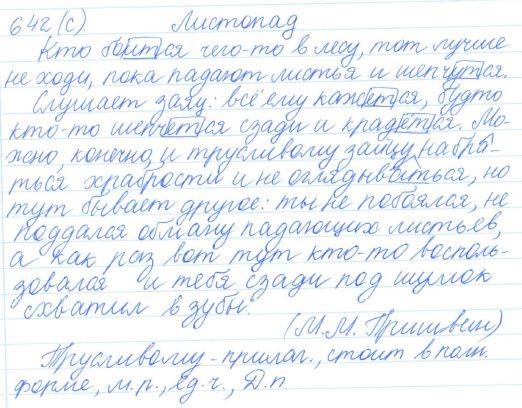 642 (с). Листопад
Кто боится чего-то в лесу, тот лучше
не ходи, пока падают листья и шепчутся.
Слушает заяц: всё ему кажется, будто
кто-то шепчется сзади и крадётся. Мо-
жно, конечно, и трусливому зайцу набра-
ться храбрости и не оглядываться, но
тут бывает другое: ты не побоялся, не
поддался обману падающих листьев,
а как раз вот тут кто-то восполь-
зовался и тебя сзади под шумок
схватил в зубы.
(М.М. Пришвин)
Трусливому - прилаг., стоит в полн.
форме, м.р., ед.ч., Д.п.